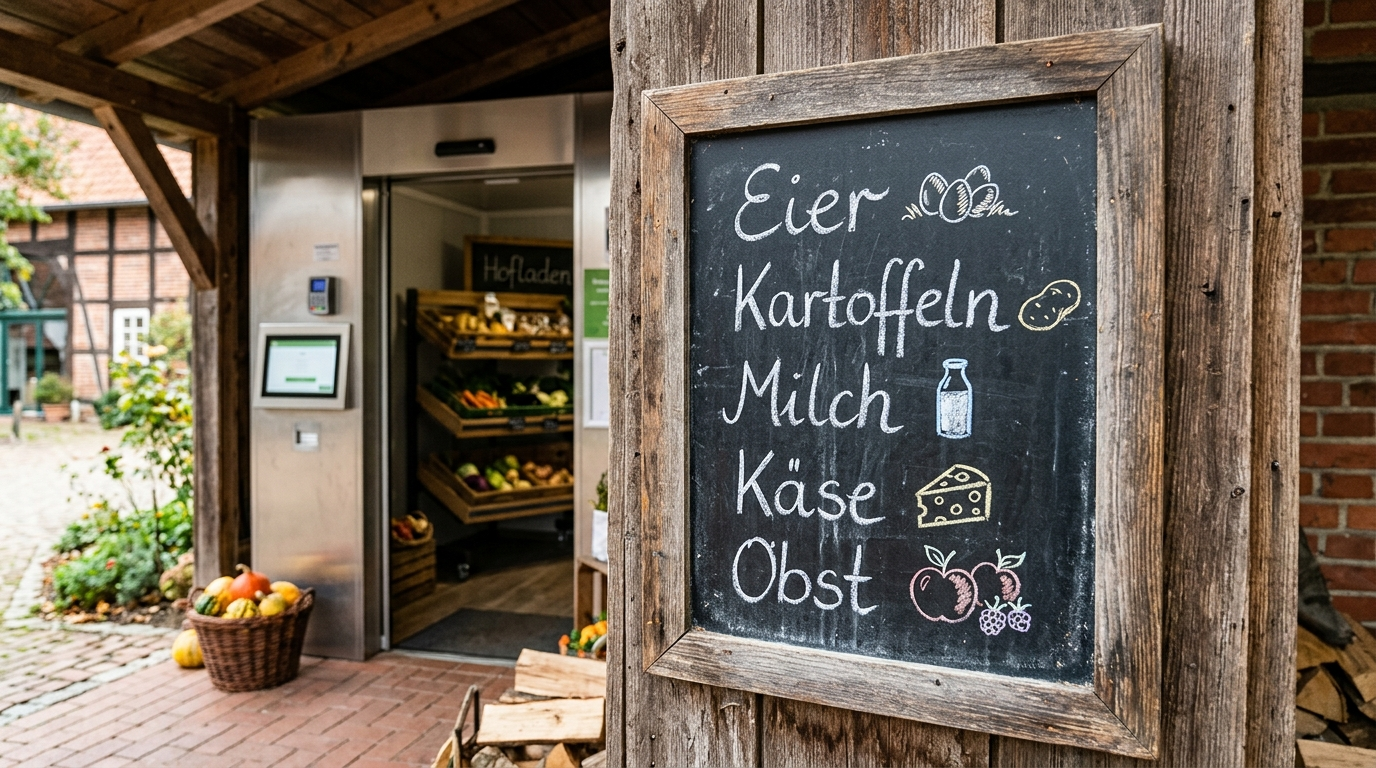 Hofladen
Eier
Kartoffeln
Milch
Käse
Obst